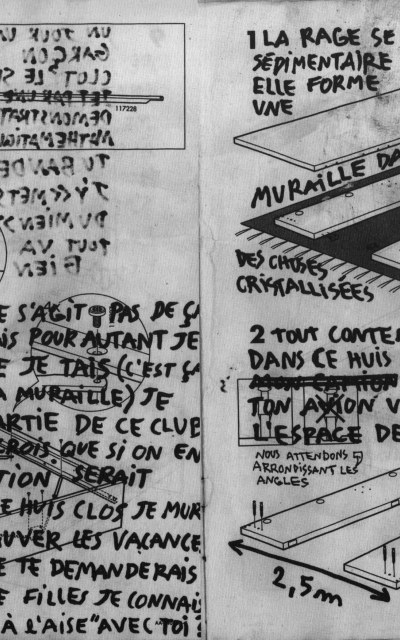 UN JOUR UN
GARÇON
CLOT LE
117228
DEMONSTRAT
MATHEMATIQ
TU BANDE
J'Y METS
DU MIEN
TOUT VA
BIEN
E S'AGIT PAS DE ÇA
IS POUR AUTANT JE
E JE TAIS (C'EST ÇA
A MURAILLE) JE
ARTIE DE CE CLUB
EROIS QUE SI ON EN
TION SERAIT
E HUIS CLOS JE MUR
UVER LES VACANCE
E TE DEMANDERAIS
E FILLES JE CONNAIS
À L'AISE" AVEC TOI
1 LA RAGE SE
SÉDIMENTAIRE
ELLE FORME
UNE
MURAILLE DA
DES CHOSES
CRISTALLISÉES
2 TOUT CONTE
DANS CE HUIS
TON AVION V
L'ESPACE DE
NOUS ATTENDONS
ARRONDISSANT LES
ANGLES
2,5m